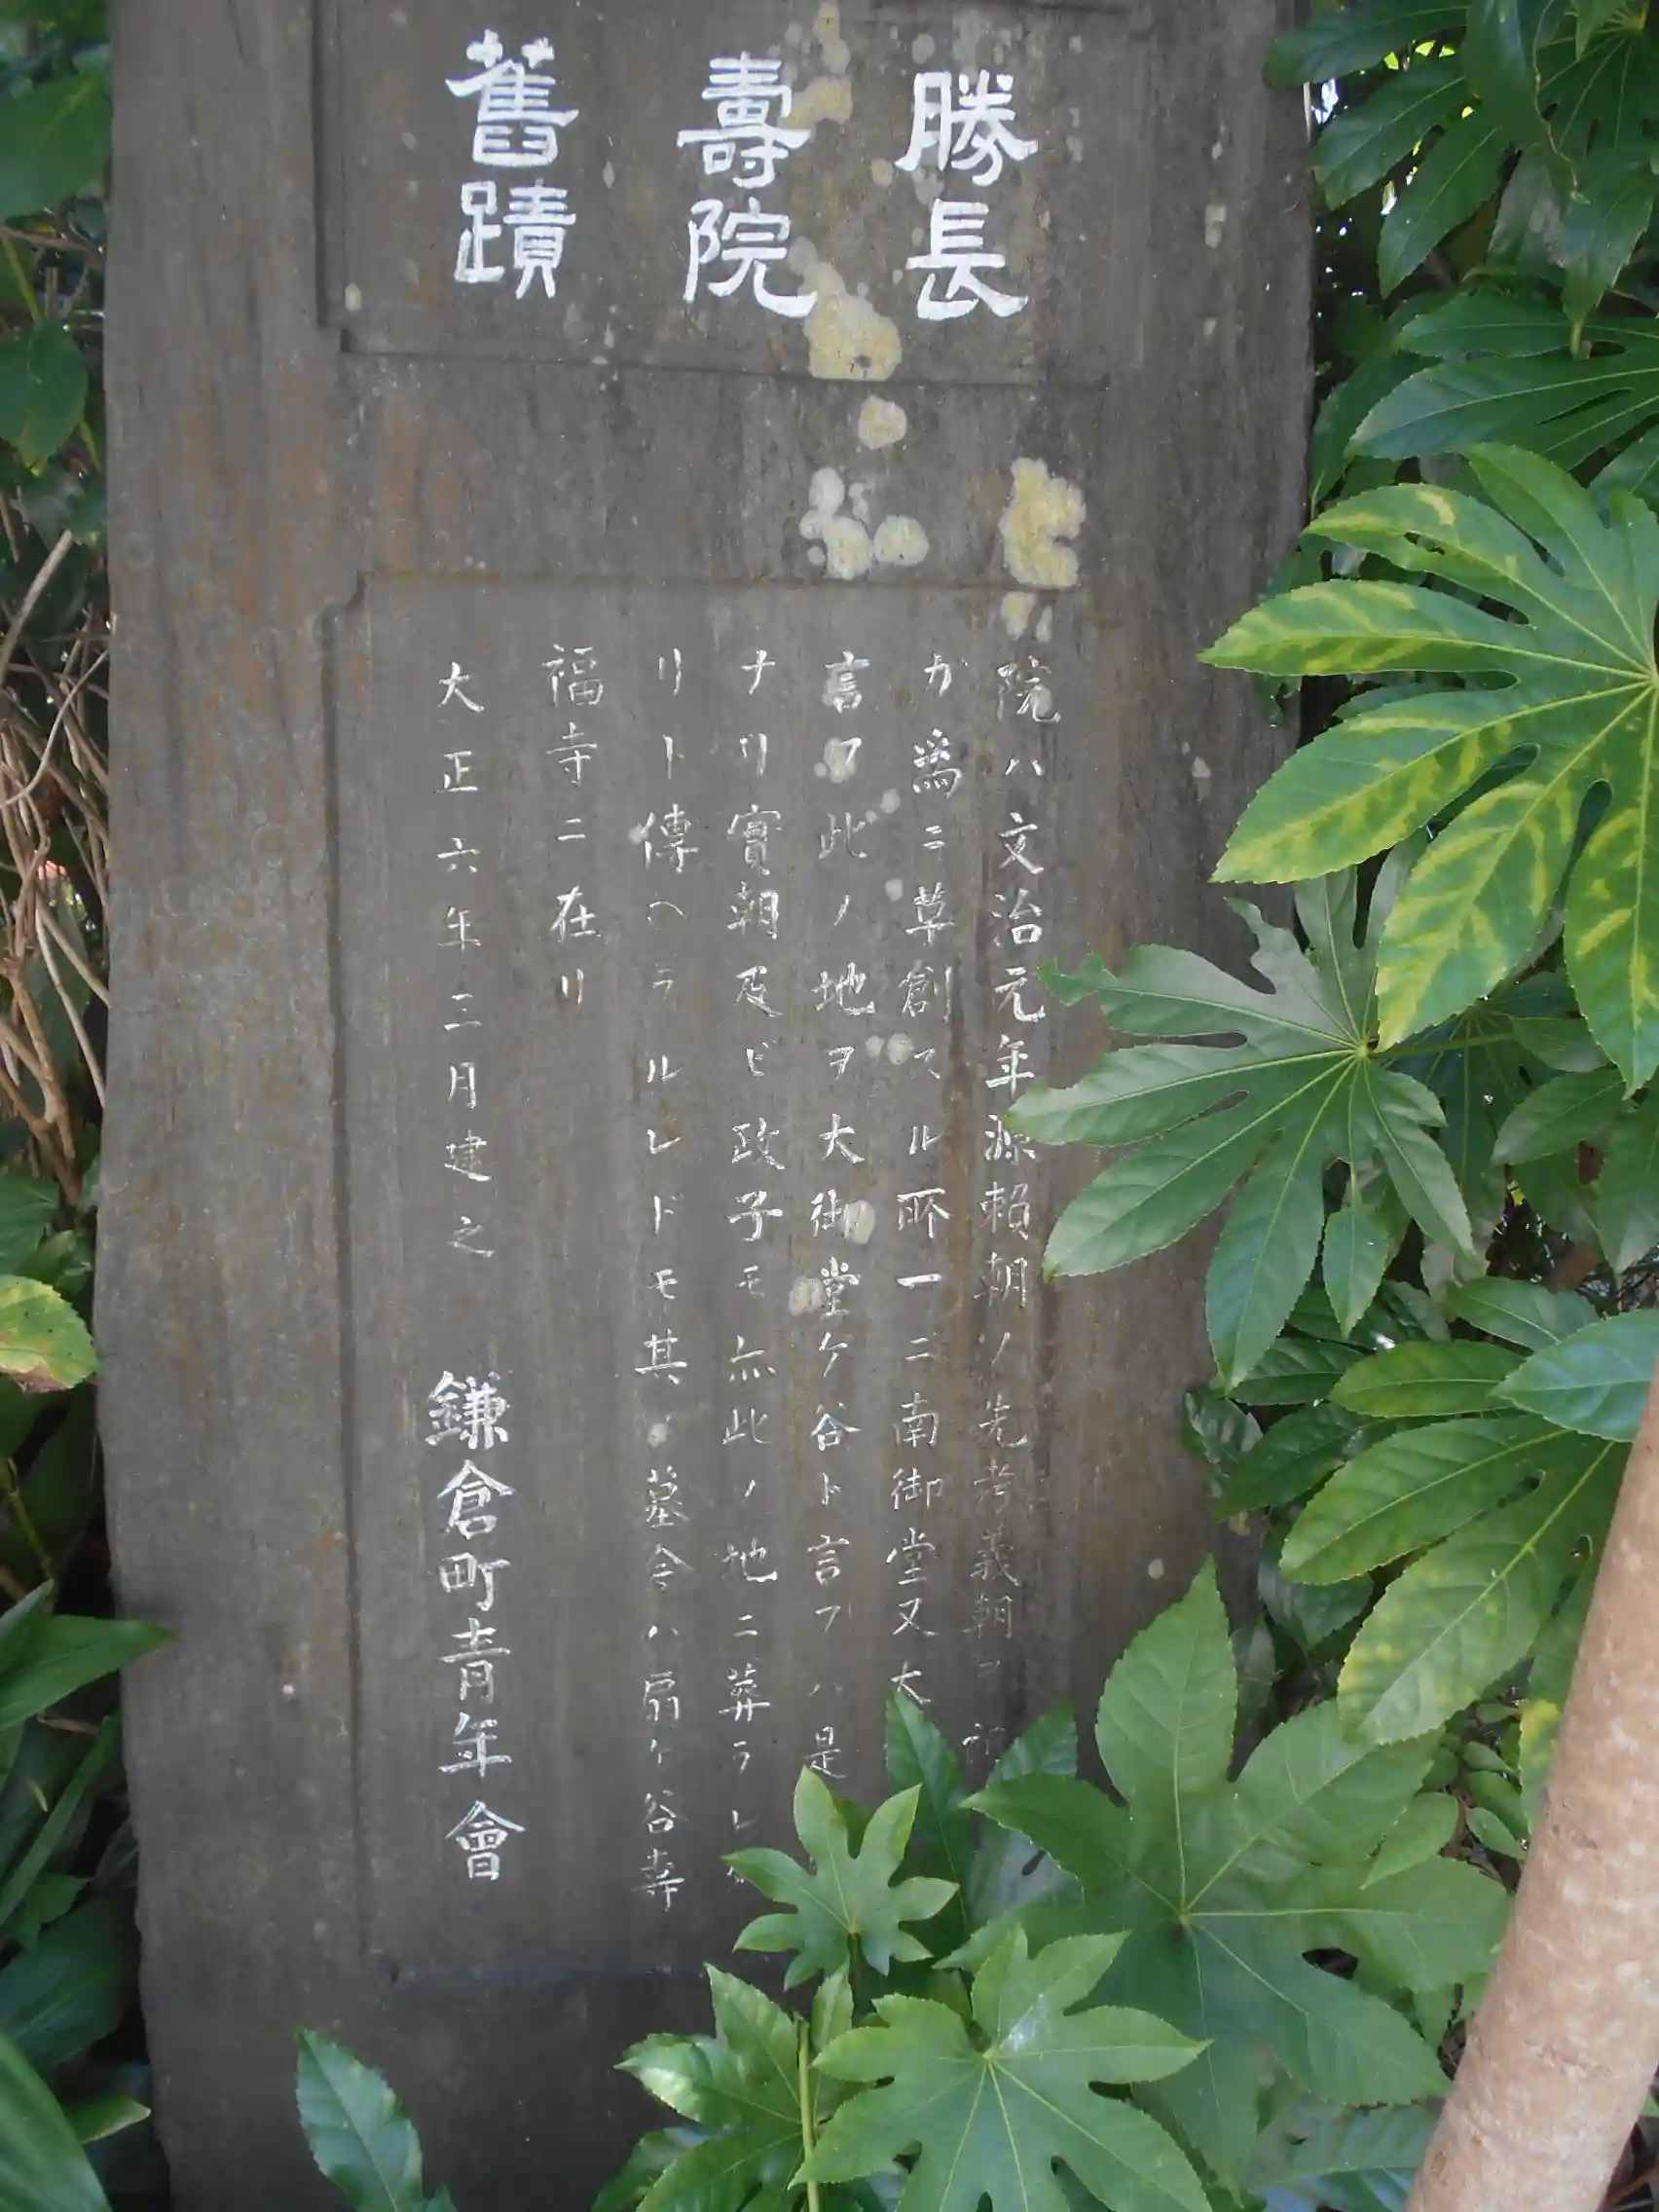 勝長
壽院
舊蹟
院ハ文治元年源頼朝ノ先考義朝ヲ
ガ爲ニ草創スル所一ニ南御堂又大
言フ此ノ地ヲ大御堂ケ谷ト言フハ是
ナリ實朝及ビ政子モ亦此ノ地ニ葬ラレ
リト傳ヘラルルレドモ其ノ墓今ハ扇ケ谷寿
福寺ニ在リ
大正六年三月建之 鎌倉町青年會